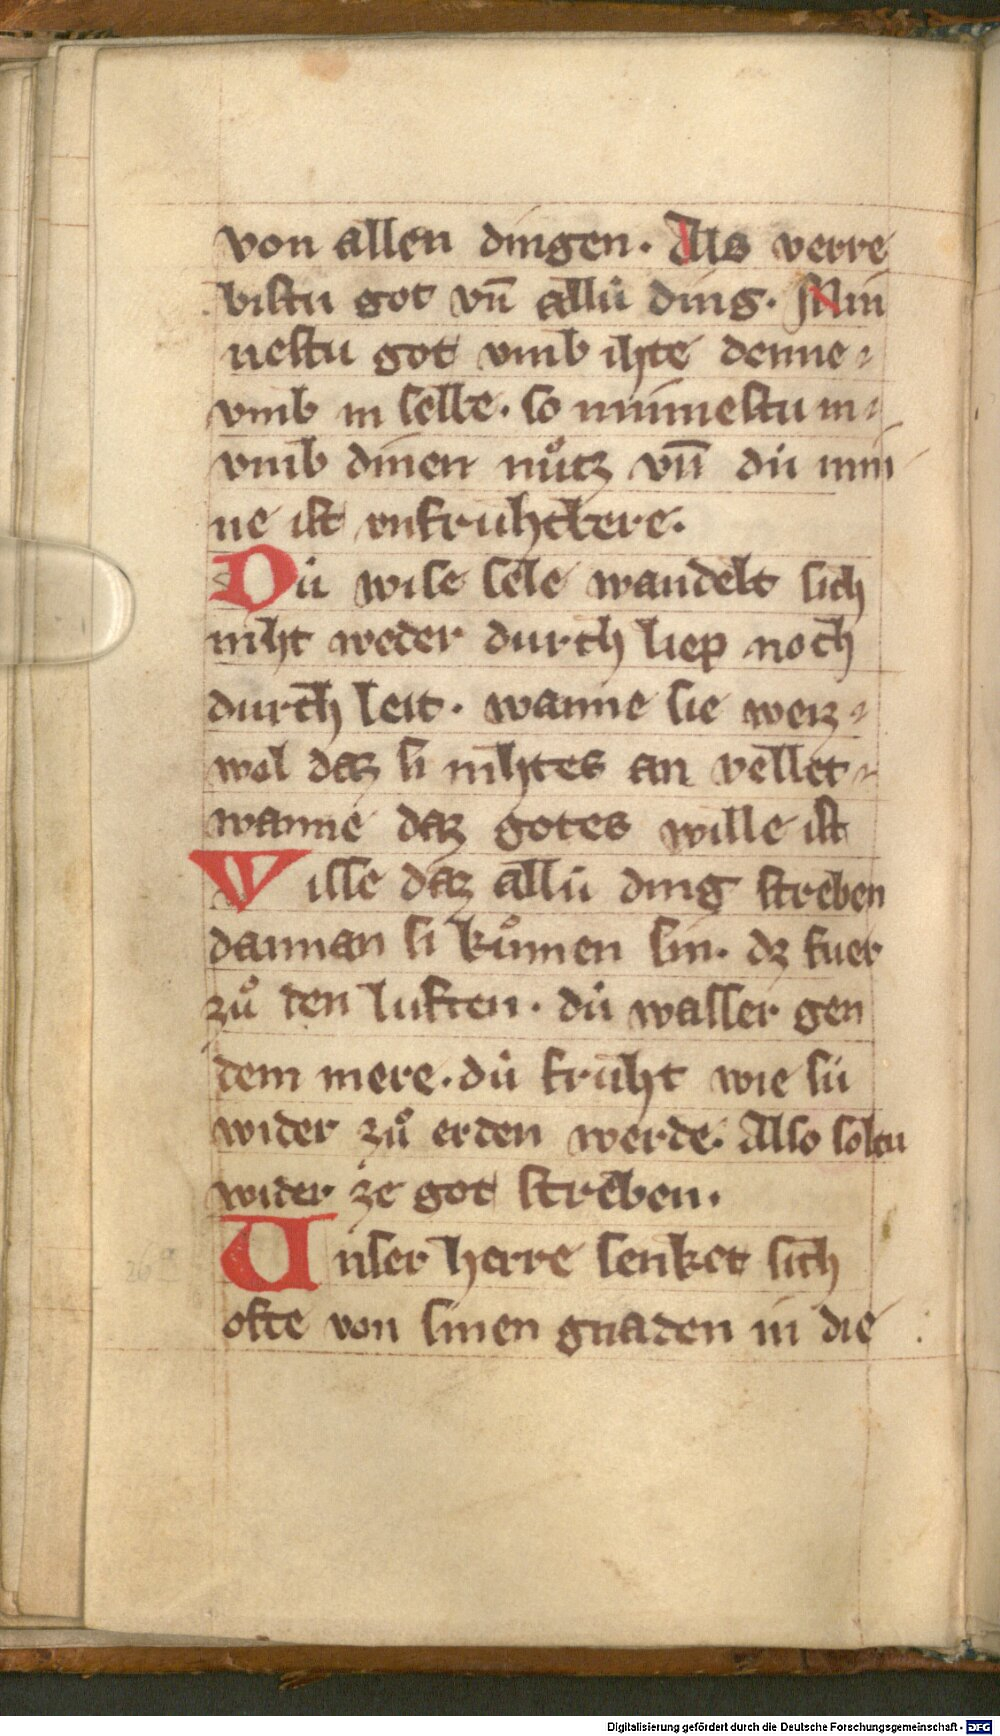 von allen dingen. Als verre
bistu got vn̄ allú ding. Min
nestu got vmb ihte denne
vmb in selbe. so minnestu in
vmb dinen nuͦtz vn̄ dú min
ne ist vnfruhtbere.
Dú wise sele wandelt sich
niht weder durch liep noch
durch leit. wanne sie weiz
wol daz si nihtes an vellet
wanne daz gotes wille ist
Wisse daz allú ding streben
dannan si kuͦmen sin. dz fuer
zuͦ den luften. dú wasser gen
dem mere. dú fruht wie sú
wider zuͦ erden werde. Also soltu
wider ze got streben.
Unser herre senket sich
ofte von sinen gnaden in die
Digitalisierung gefördert durch die Deutsche Forschungsgemeinschaft - DFG